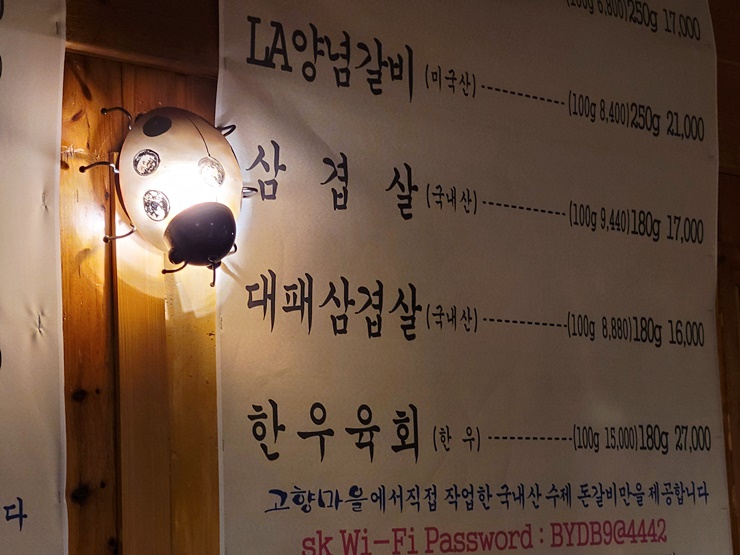 (100g 6,800)250g 17,000
LA양념갈비 (미국산)----------(100g 8,400)250g 21,000
삼 겹 살 (국내산)----------(100g 9,440)180g 17,000
대패삼겹살 (국내산)----------(100g 8,880)180g 16,000
한우육회 (한 우)----------(100g 15,000)180g 27,000
고향마을에서직접 작업한 국내산 수제 돈갈비만을 제공합니다
다
sk Wi-Fi Password : BYDB9@4442